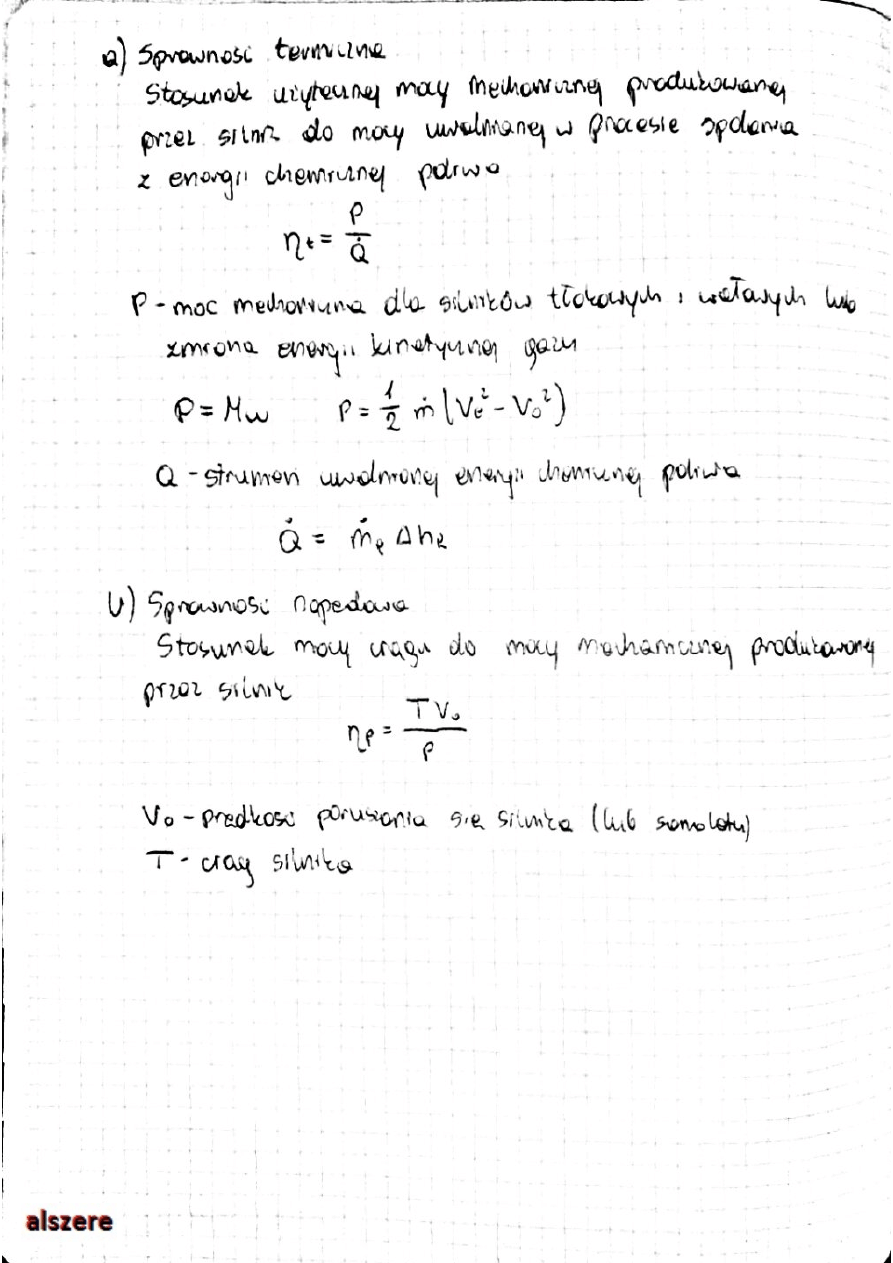 a) Sprawność termiczna
Stosunek użytecznej mocy mechanicznej produkowanej
przez silnik do mocy uwalnianej w procesie spalania
z energii chemicznej paliwa
ηt = P / Q̇
P - moc mechaniczna dla silników tłokowych i wałowych lub
zmiana energii kinetycznej gazu
P = Mω P = 1/2 ṁ (Ve² - V0²)
Q - strumień uwolnionej energii chemicznej paliwa
Q̇ = ṁp ΔhR
b) Sprawność napędowa
Stosunek mocy ciągu do mocy mechanicznej produkowanej
przez silnik
ηp = T V0 / P
V0 - prędkość poruszania się silnika (lub samolotu)
T - ciąg silnika
alszere